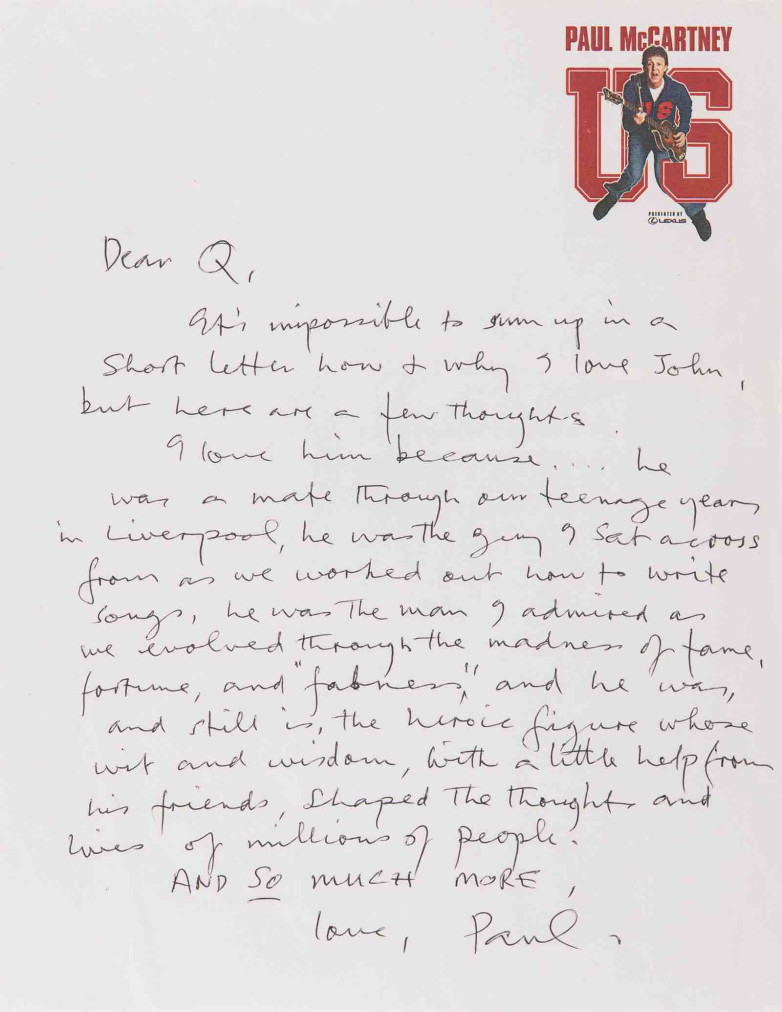 PAUL McCARTNEY
US
US
PRESENTED BY
LEXUS
Dear Q,
It's impossible to sum up in a
short letter how & why I love John,
but here are a few thoughts
I love him because.... he
was a mate through our teenage years
in Liverpool, he was the guy I sat across
from as we worked out how to write
songs, he was the man I admired as
we evolved through the madness of fame,
fortune, and "fabness," and he was,
and still is, the heroic figure whose
wit and wisdom, with a little help from
his friends, shaped the thoughts and
lives of millions of people.
AND SO MUCH MORE,
love, Paul.